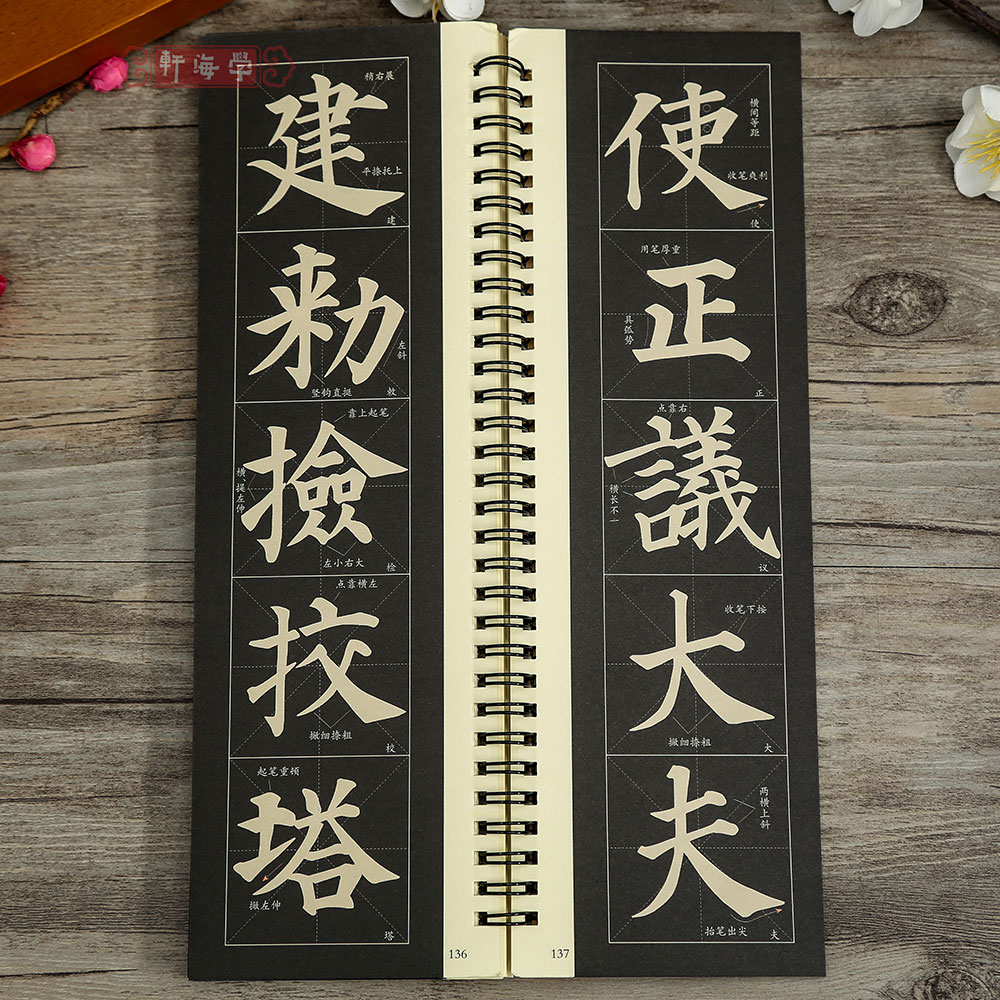 軒海學
建
稍右展
平捺托上
建
勑
左斜
竖钩直挺
敕
撿
靠上起笔
横、提左伸
左小右大
检
挍
点靠横左
撇细捺粗
校
塔
起笔重顿
撇左伸
塔
136
使
横间等距
收笔爽利
使
正
用笔厚重
具弧势
正
議
点靠右
横长不一
议
大
收笔下按
撇细捺粗
大
夫
两横上斜
抬笔出尖
夫
137